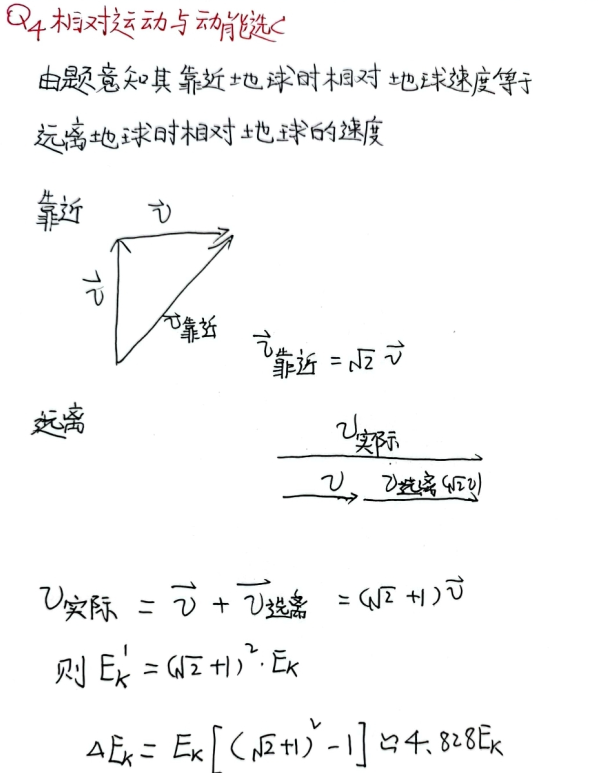 Q4 相对运动与动能选C
由题意知其靠近地球时相对地球速度等于
远离地球时相对地球的速度
靠近
v⃗
v⃗
v⃗靠近
v⃗靠近 = √2 v⃗
远离
v实际
v
v逃离(√2v)
v实际 = v⃗ + v⃗逃离 = (√2+1)v⃗
则 Eₖ' = (√2+1)²·Eₖ
ΔEₖ = Eₖ[(√2+1)²-1] ≒ 4.828Eₖ